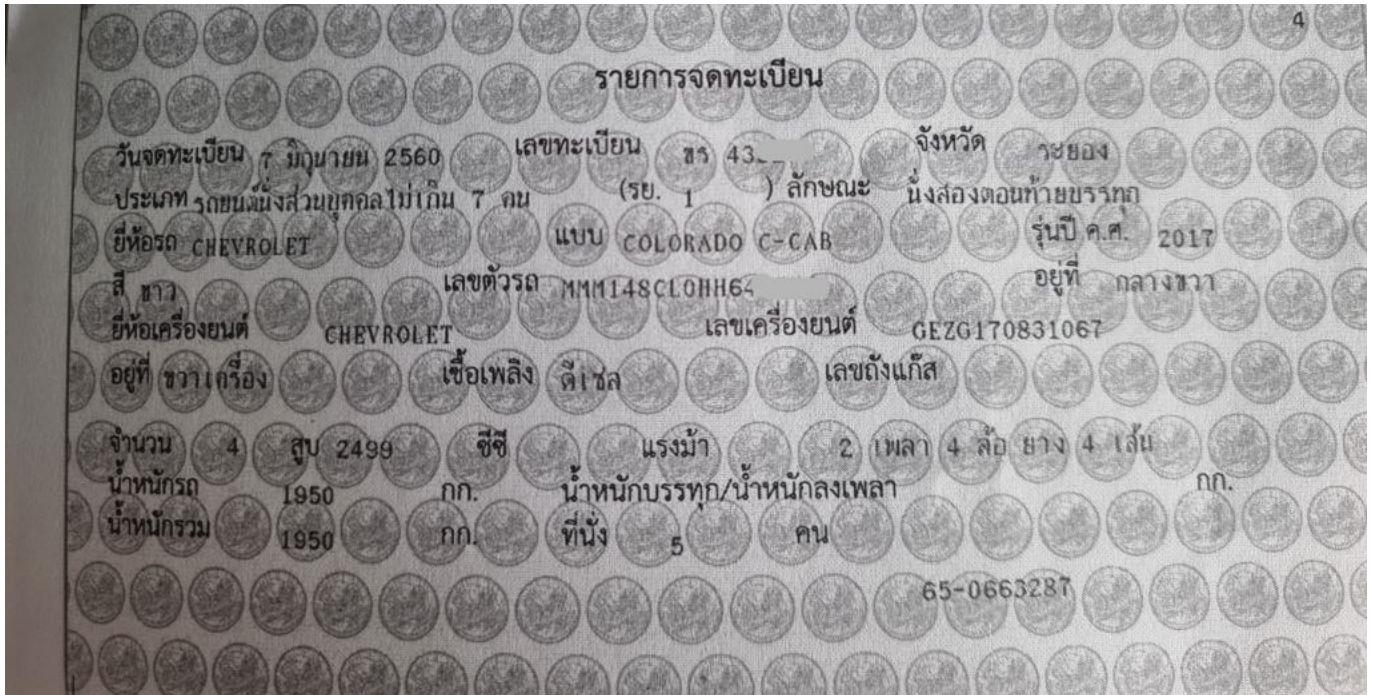 4
รายการจดทะเบียน
วันจดทะเบียน 7 มิถุนายน 2560 เลขทะเบียน ขร 43 จังหวัด ระยอง
ประเภท รถยนต์นั่งส่วนบุคคลไม่เกิน 7 คน (รย. 1 ) ลักษณะ นั่งสองตอนท้ายบรรทุก
ยี่ห้อรถ CHEVROLET แบบ COLORADO C-CAB รุ่นปี ค.ศ. 2017
สี ขาว เลขตัวรถ MMM148CL0HH64 อยู่ที่ กลางขวา
ยี่ห้อเครื่องยนต์ CHEVROLET เลขเครื่องยนต์ GEZG170831067
อยู่ที่ ขวาเครื่อง เชื้อเพลิง ดีเซล เลขถังแก๊ส
จำนวน 4 สูบ 2499 ซีซี แรงม้า 2 เพลา 4 ล้อ ยาง 4 เส้น
น้ำหนักรถ 1950 กก. น้ำหนักบรรทุก/น้ำหนักลงเพลา กก.
น้ำหนักรวม 1950 กก. ที่นั่ง 5 คน
65-0663287